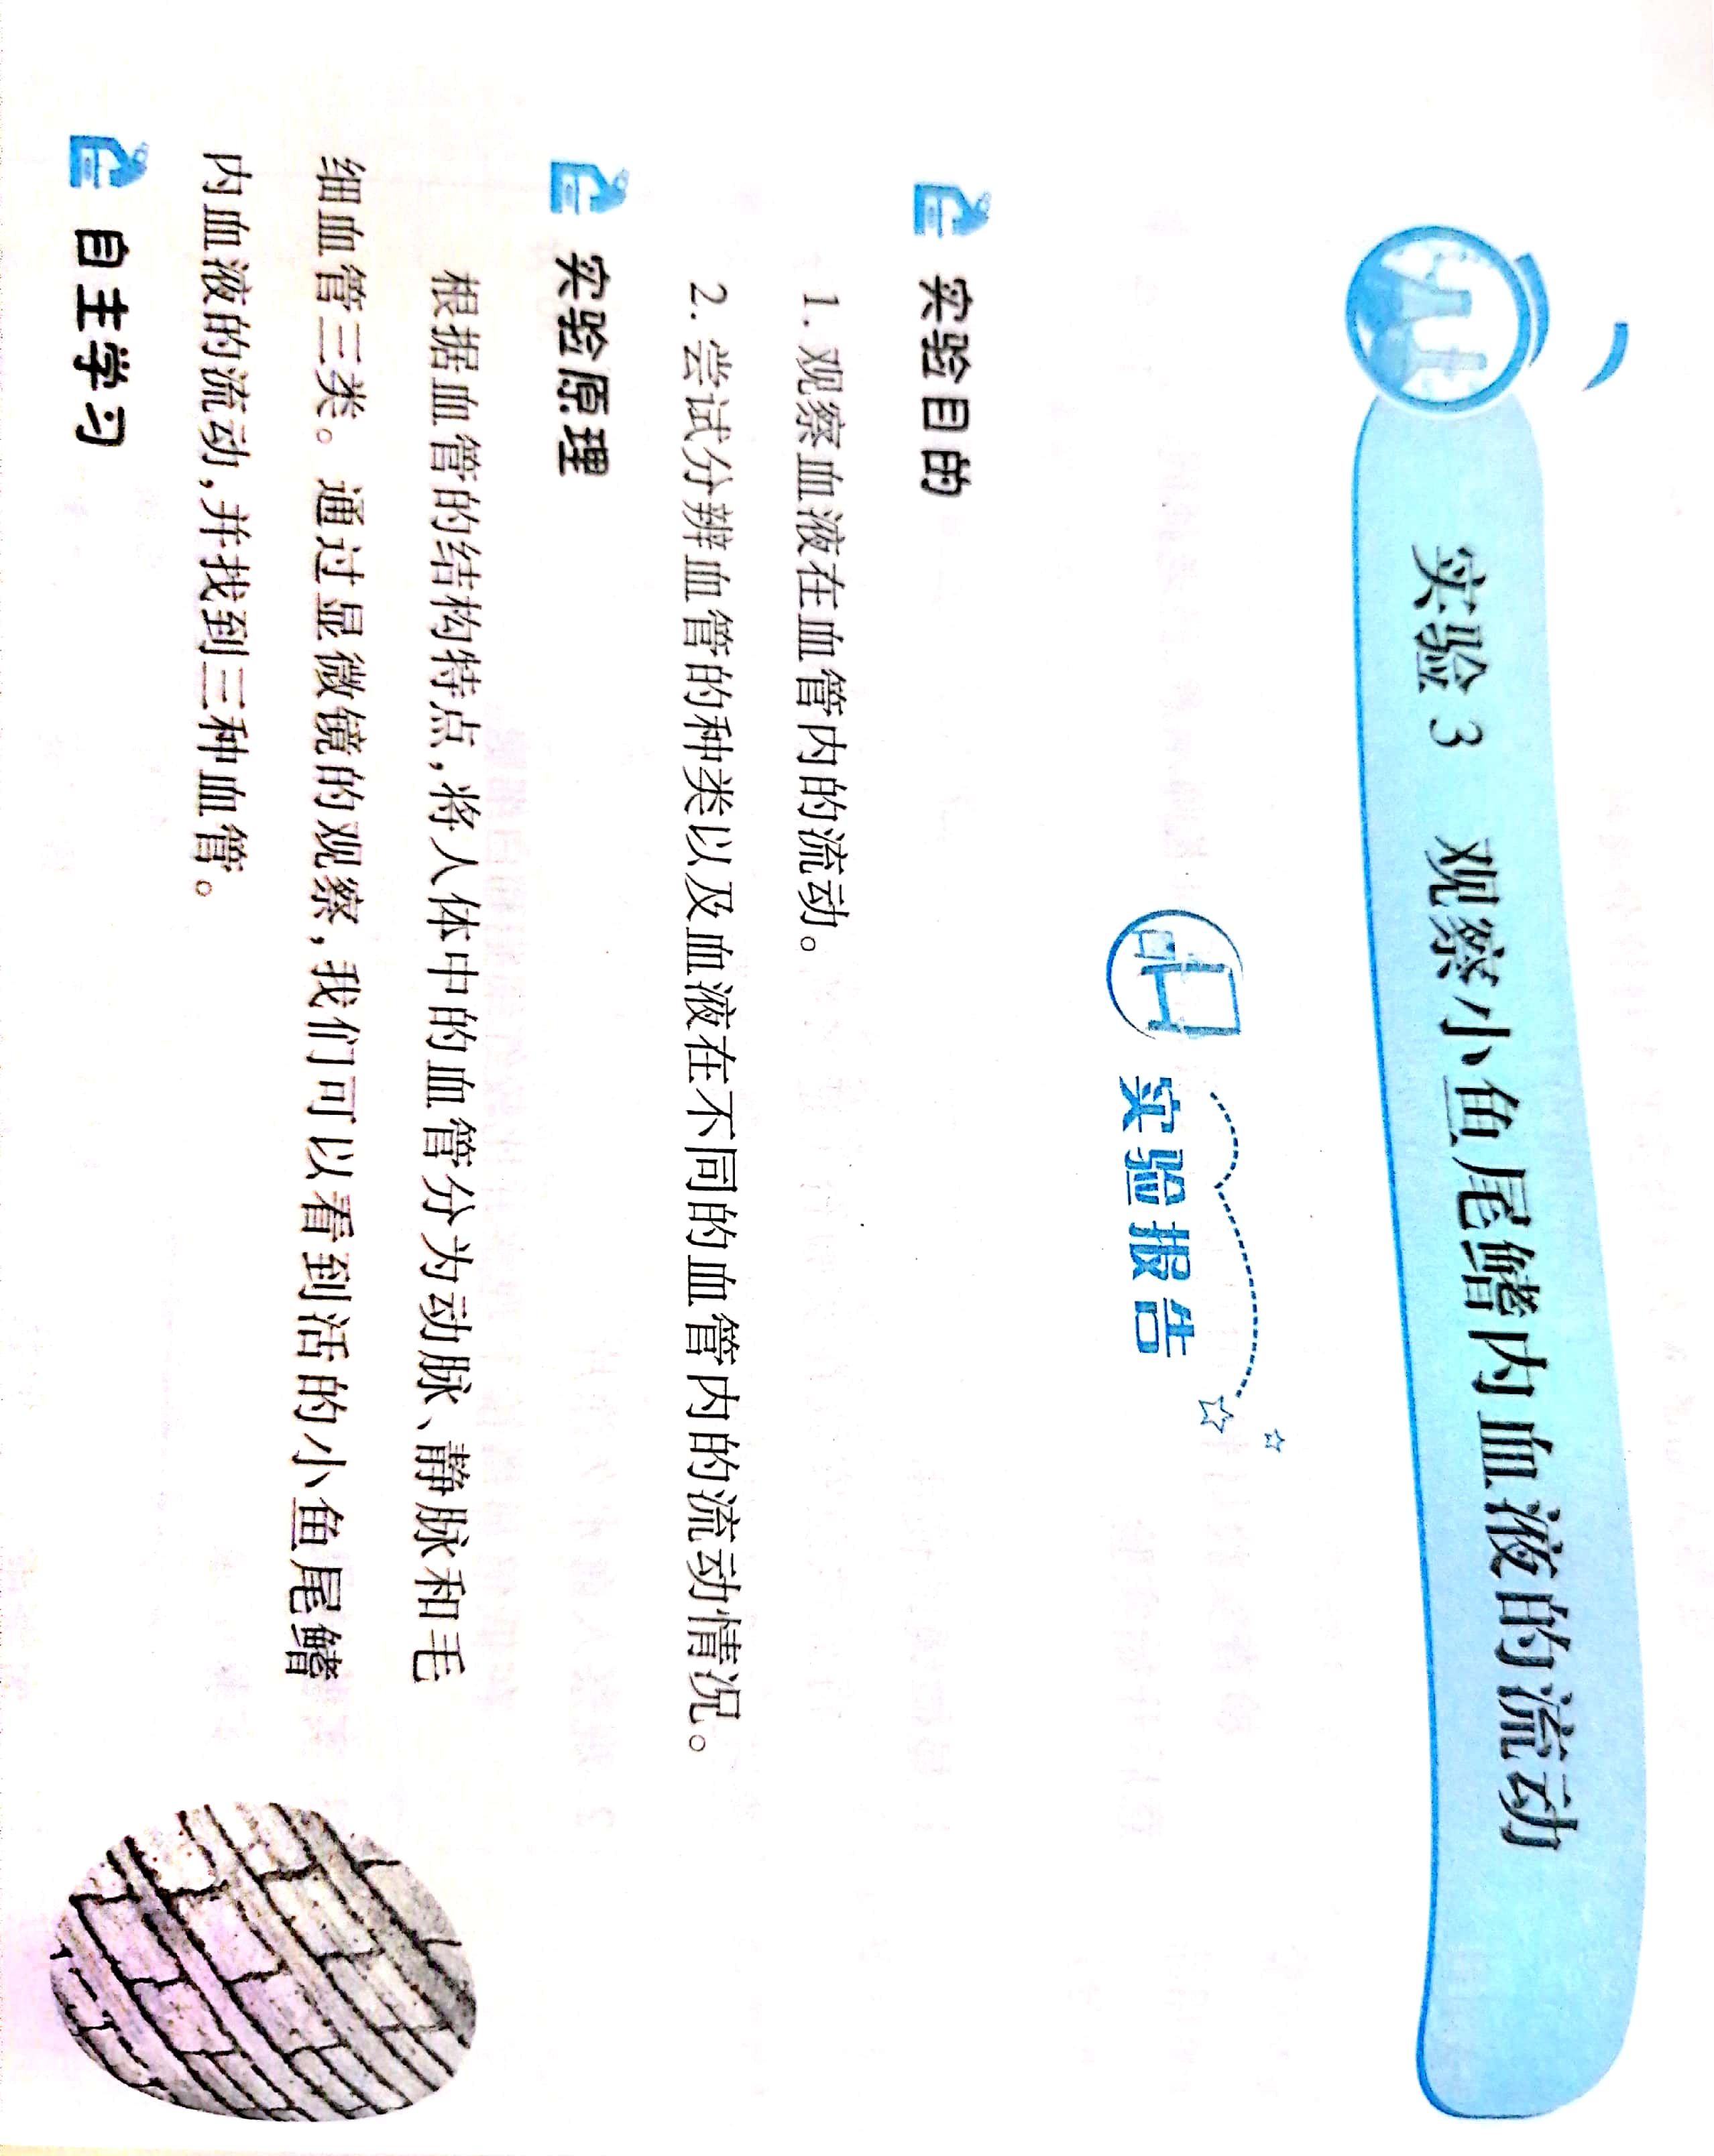 实验 3 观察小鱼尾鳍内血液的流动
实验报告
实验目的
1. 观察血液在血管内的流动。
2. 尝试分辨血管的种类以及血液在不同的血管内的流动情况。
实验原理
根据血管的结构特点,将人体中的血管分为动脉、静脉和毛
细血管三类。通过显微镜的观察,我们可以看到活的小鱼尾鳍
内血液的流动,并找到三种血管。
自主学习